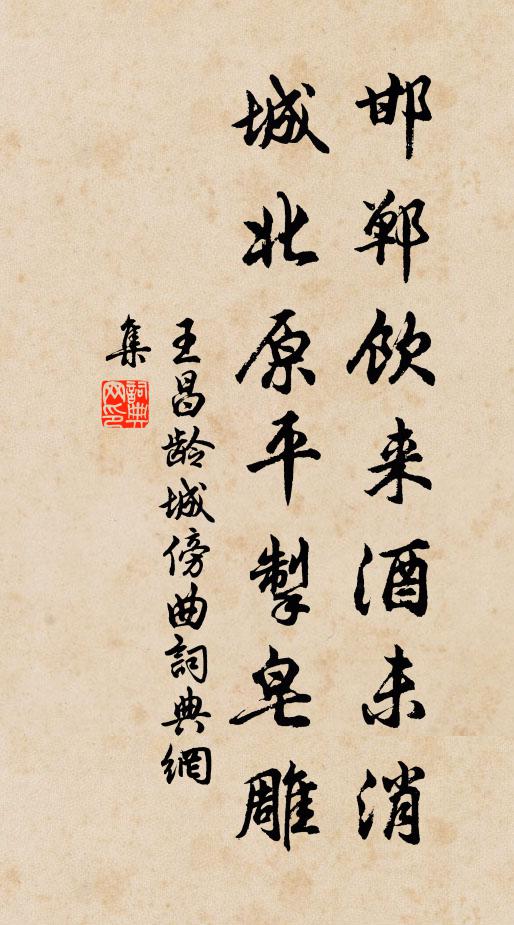 邯郸饮来酒未消
城北原平掣皂雕
王昌龄城傍曲詞典網
集
詞典
网印